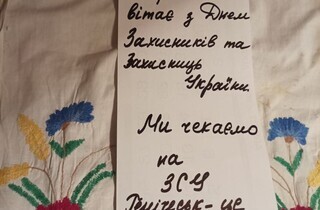 вітає з Днем
Захисників та
Захисниць
України.
Ми чекаємо
на
ЗСУ
Генічеськ - це